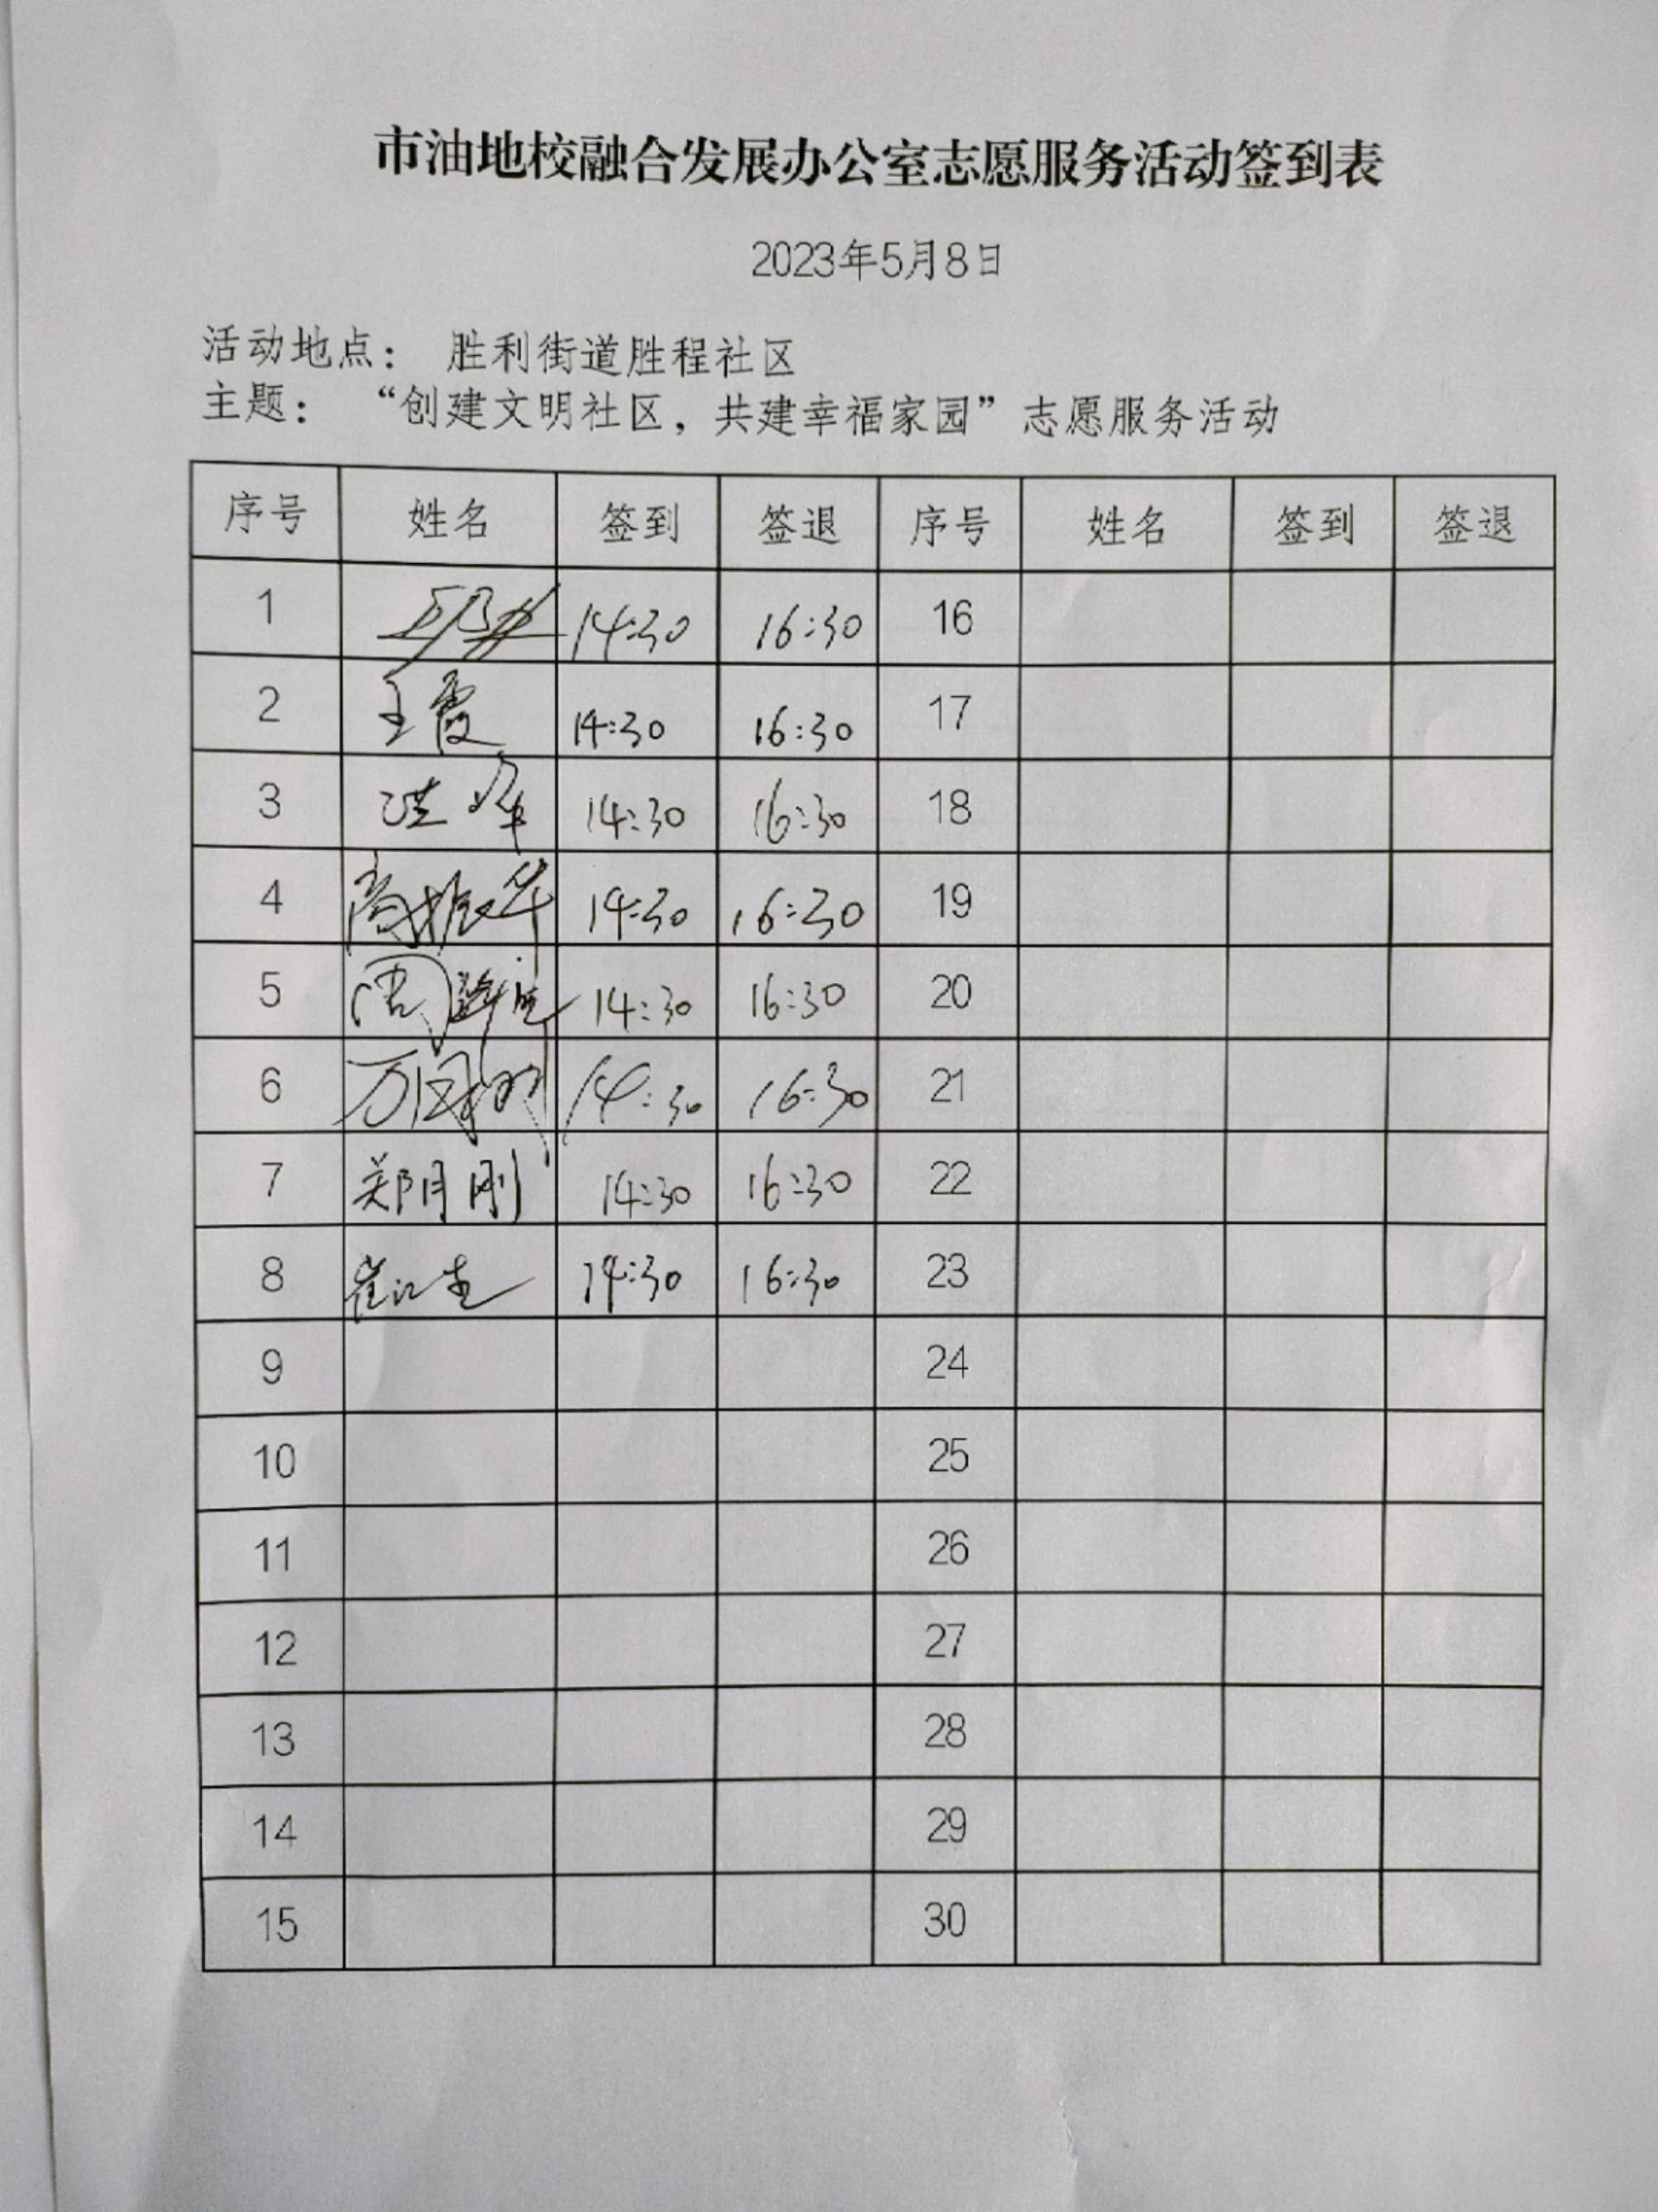 市油地校融合发展办公室志愿服务活动签到表
2023年5月8日
活动地点： 胜利街道胜程社区
主题： “创建文明社区，共建幸福家园”志愿服务活动
序号 姓名 签到 签退 序号 姓名 签到 签退
1 14:30 16:30 16
2 王霞 14:30 16:30 17
3 洪军 14:30 16:30 18
4 商振华 14:30 16:30 19
5 周 14:30 16:30 20
6 万 14:30 16:30 21
7 郑月刚 14:30 16:30 22
8 崔江 14:30 16:30 23
9 24
10 25
11 26
12 27
13 28
14 29
15 30